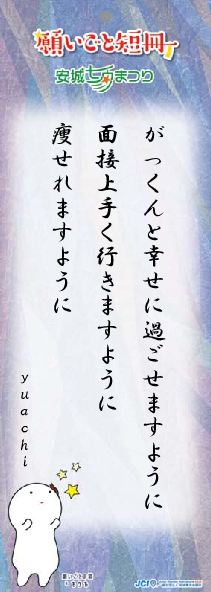 願いごと短冊
安城七夕まつり
がっくんと幸せに過ごせますように
面接上手く行きますように
痩せれますように
yuachi
JCI